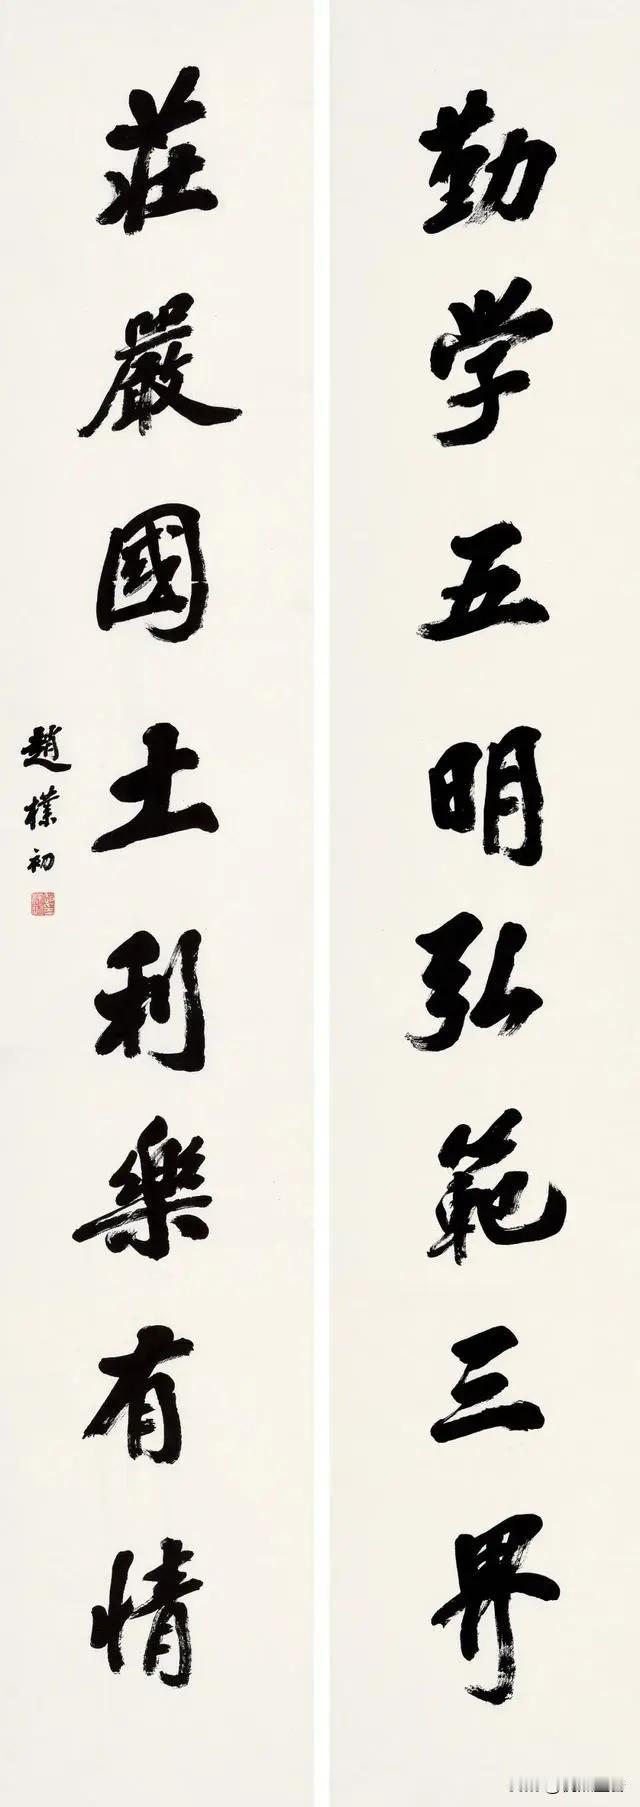 勤学五明弘範三界
莊嚴國土利樂有情
趙樸初